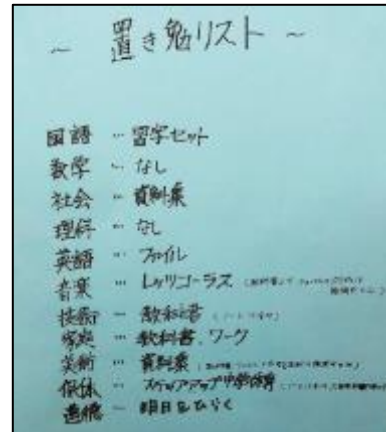 ~ 置き勉リスト ~
国語 … 習字セット
数学 … なし
社会 … 資料集
理科 … なし
英語 … ファイル
音楽 … レッツコーラス
技術 … 教科書
家庭 … 教科書、ワーク
美術 … 資料集
保体 … ステップアップ中学体育
道徳 … 明日をひらく